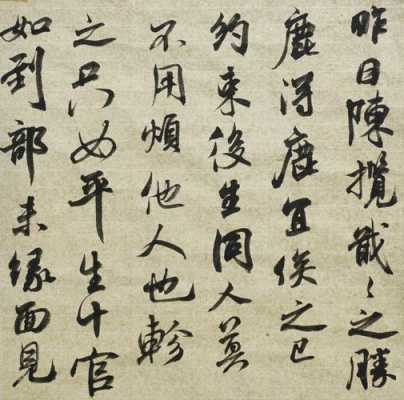 昨日陳攬戢〻之勝
鹿得鹿宜俟之已
約束後生同人莫
不用煩他人也軫
之只如平生十官
如到部未緣面見